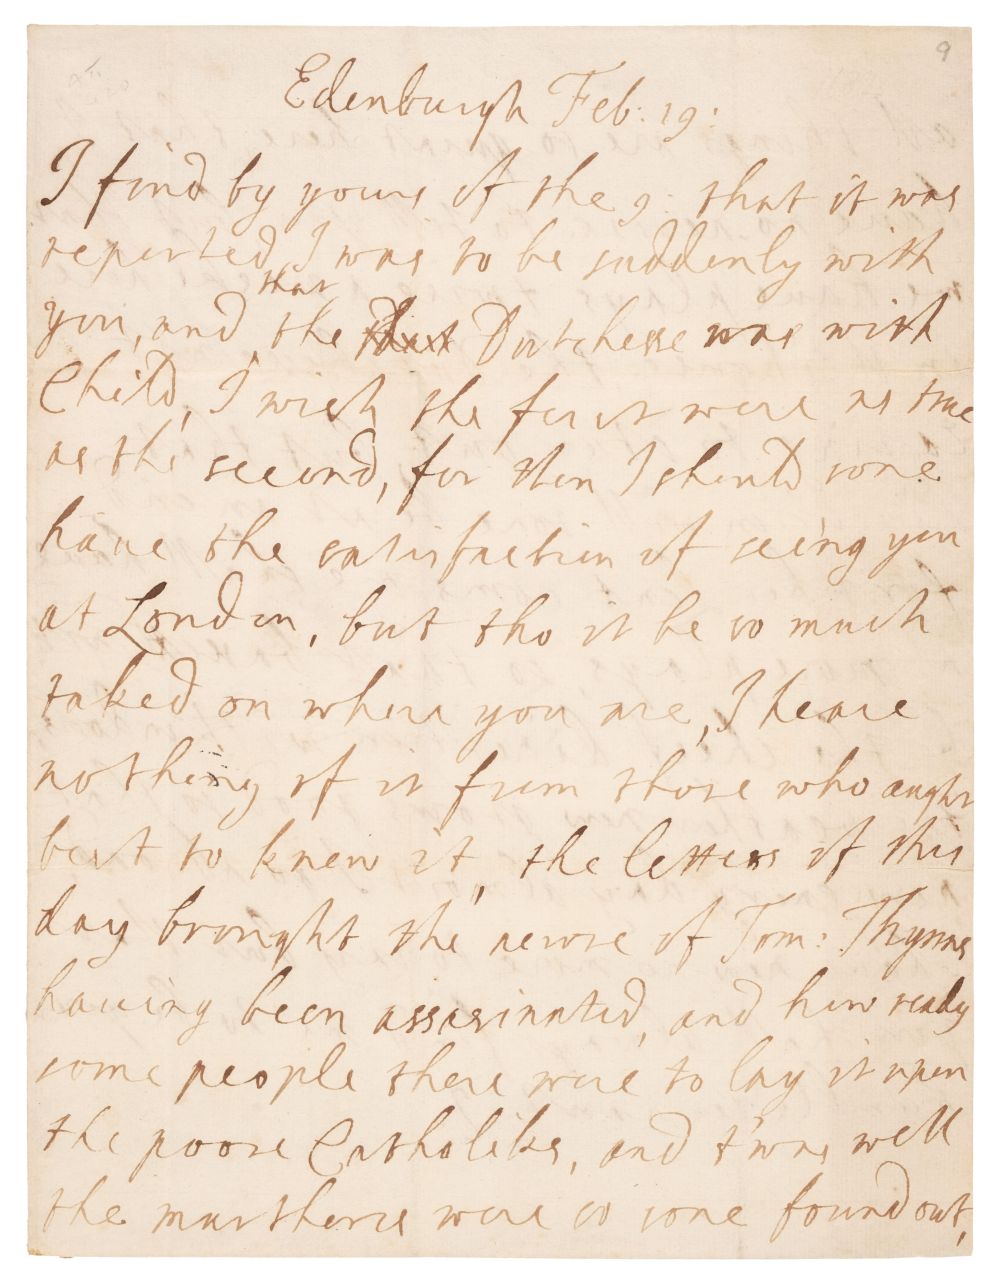 9
Edenburgh Feb: 19:
I find by yours of the 9: that it was
reported I was to be suddenly with
that
you, and the that Dutchesse was with
Child, I wish the first were as true
as the second, for then I should sone
have the satisfaction of seeing you
at London, but tho it be so much
taked on where you are, I heare
nothing of it from those who aught
best to know it, the letters of this
day brought the newse of Tom: Thynns
having been assasinated, and how ready
some people there were to lay it upon
the poore Catholiks, and t'was well
the murtherers were so sone found out,